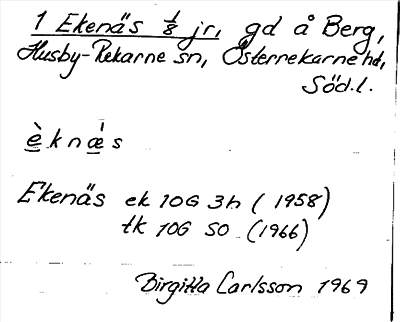 1 Ekenäs 1/8 jr, gd å Berg,
Husby-Rekarne sn, Österrekarne hd,
Söd.l.
è k n æ̀ s
Ekenäs ek 10G 3h (1958)
tk 10G SO (1966)
Birgitta Carlsson 1969